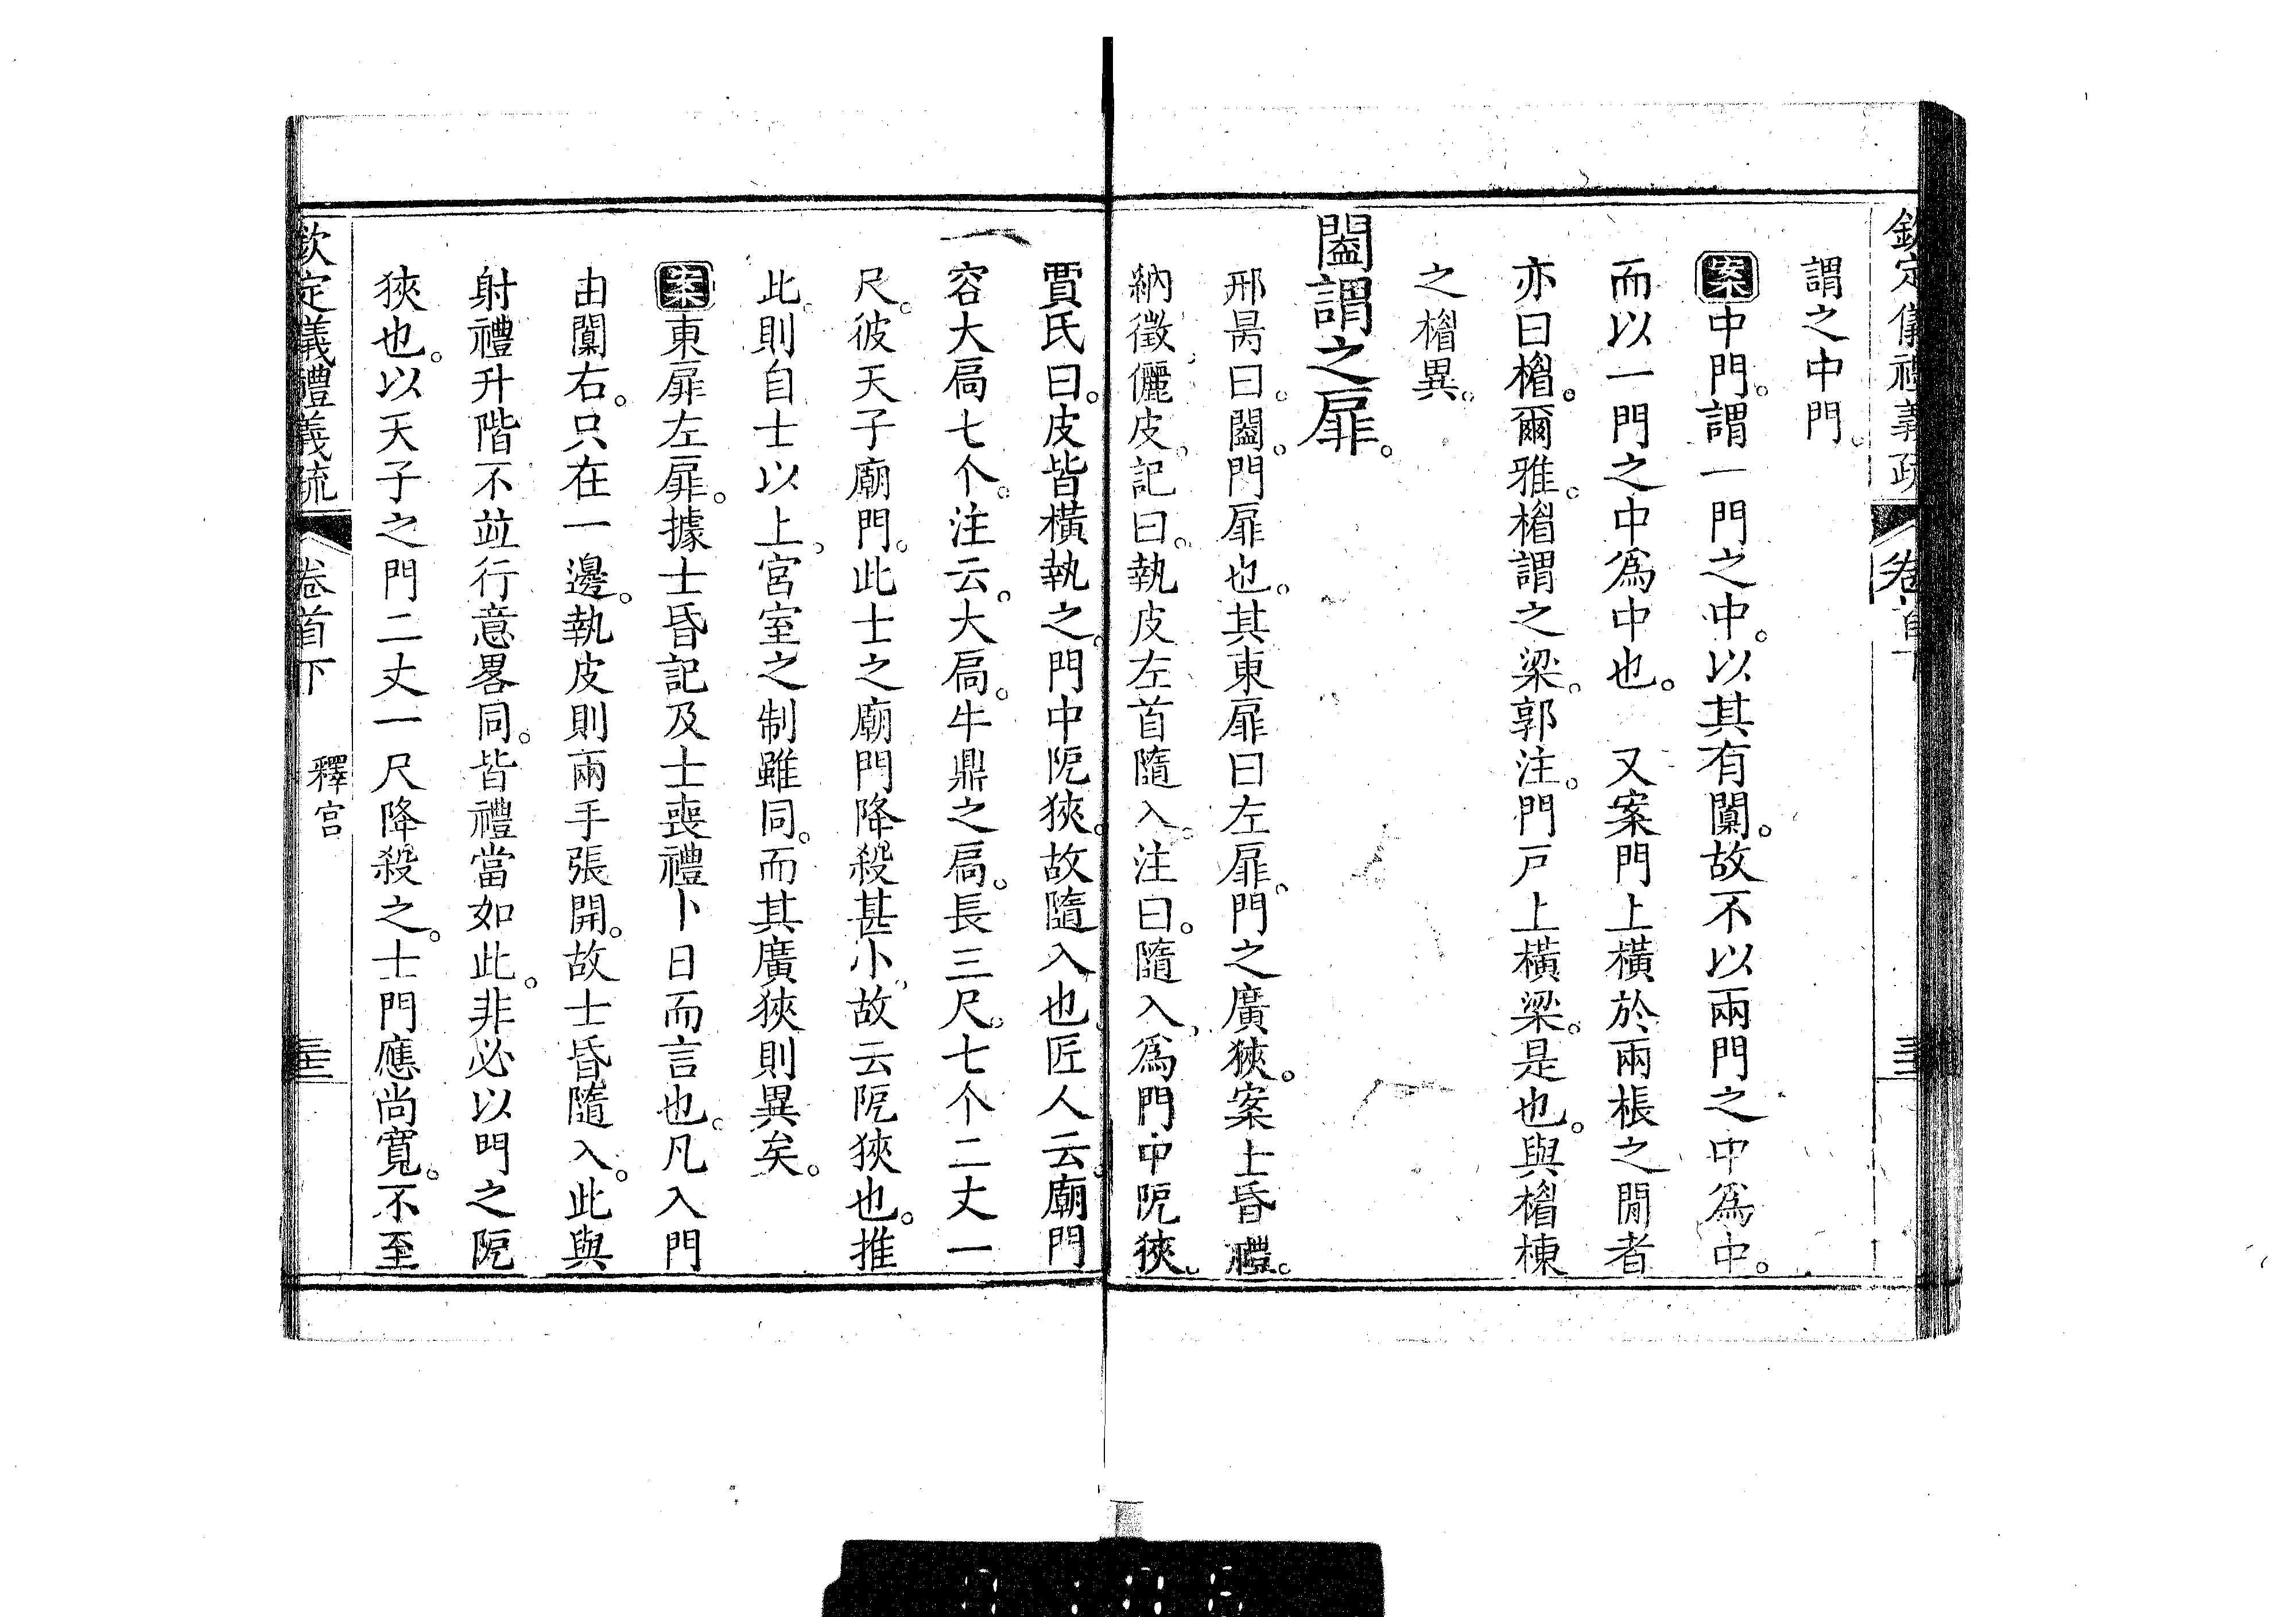 欽定儀禮義疏 卷首下
謂之中門。
案中門。謂一門之中。以其有闑。故不以兩門之中爲中。
而以一門之中爲中也。 又案門上橫於兩棖之閒者
亦曰楣。爾雅。楣謂之梁。郭注。門戸上橫梁。是也。與楣棟
之楣異。
闔謂之扉。
邢昺曰。闔。門扉也。其東扉曰左扉。門之廣狹。案士昏禮。
納徵。儷皮。記曰。執皮左首隨入。注曰。隨入、爲門中阨狹。
賈氏曰。皮皆橫執之。門中阨狹。故隨入也。匠人云。廟門
容大扃七个。注云。大扃。牛鼎之扃。長三尺。七个二丈一
尺。彼天子廟門。此士之廟門降殺甚小、故云阨狹也。推
此。則自士以上、宮室之制雖同。而其廣狹則異矣。
案東扉左扉。據士昏記及士喪禮卜日而言也。凡入門
由闑右。只在一邊。執皮則兩手張開。故士昏隨入。此與
射禮升階不竝行意畧同。皆禮當如此。非必以門之阨
狹也。以天子之門二丈一尺降殺之。士門應尚寛。不至
欽定儀禮義疏 卷首下 釋宮